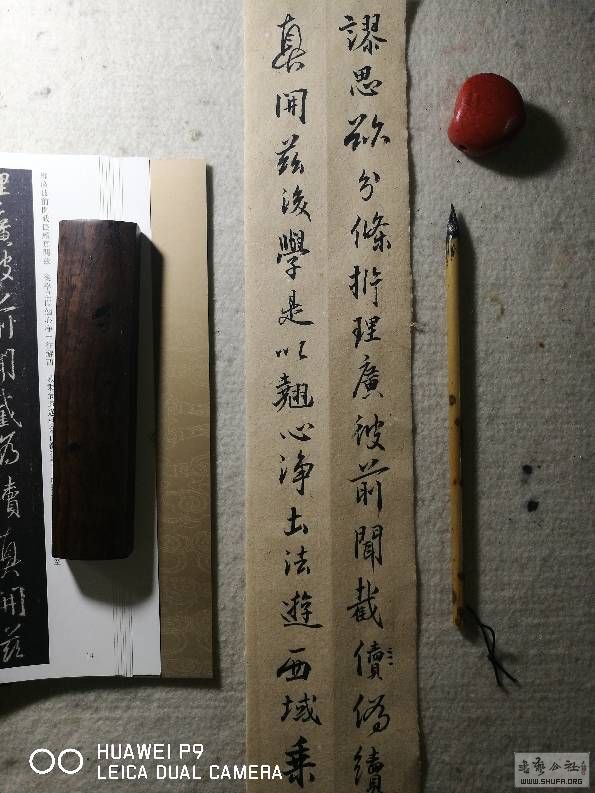 謬思欲分條析理廣彼前聞截債偽續
真開茲後學是以翹心淨土法遊西域乘
理廣彼前聞截偽續真開茲
HUAWEI P9
LEICA DUAL CAMERA
書法公社
WWW.SHUFA.ORG